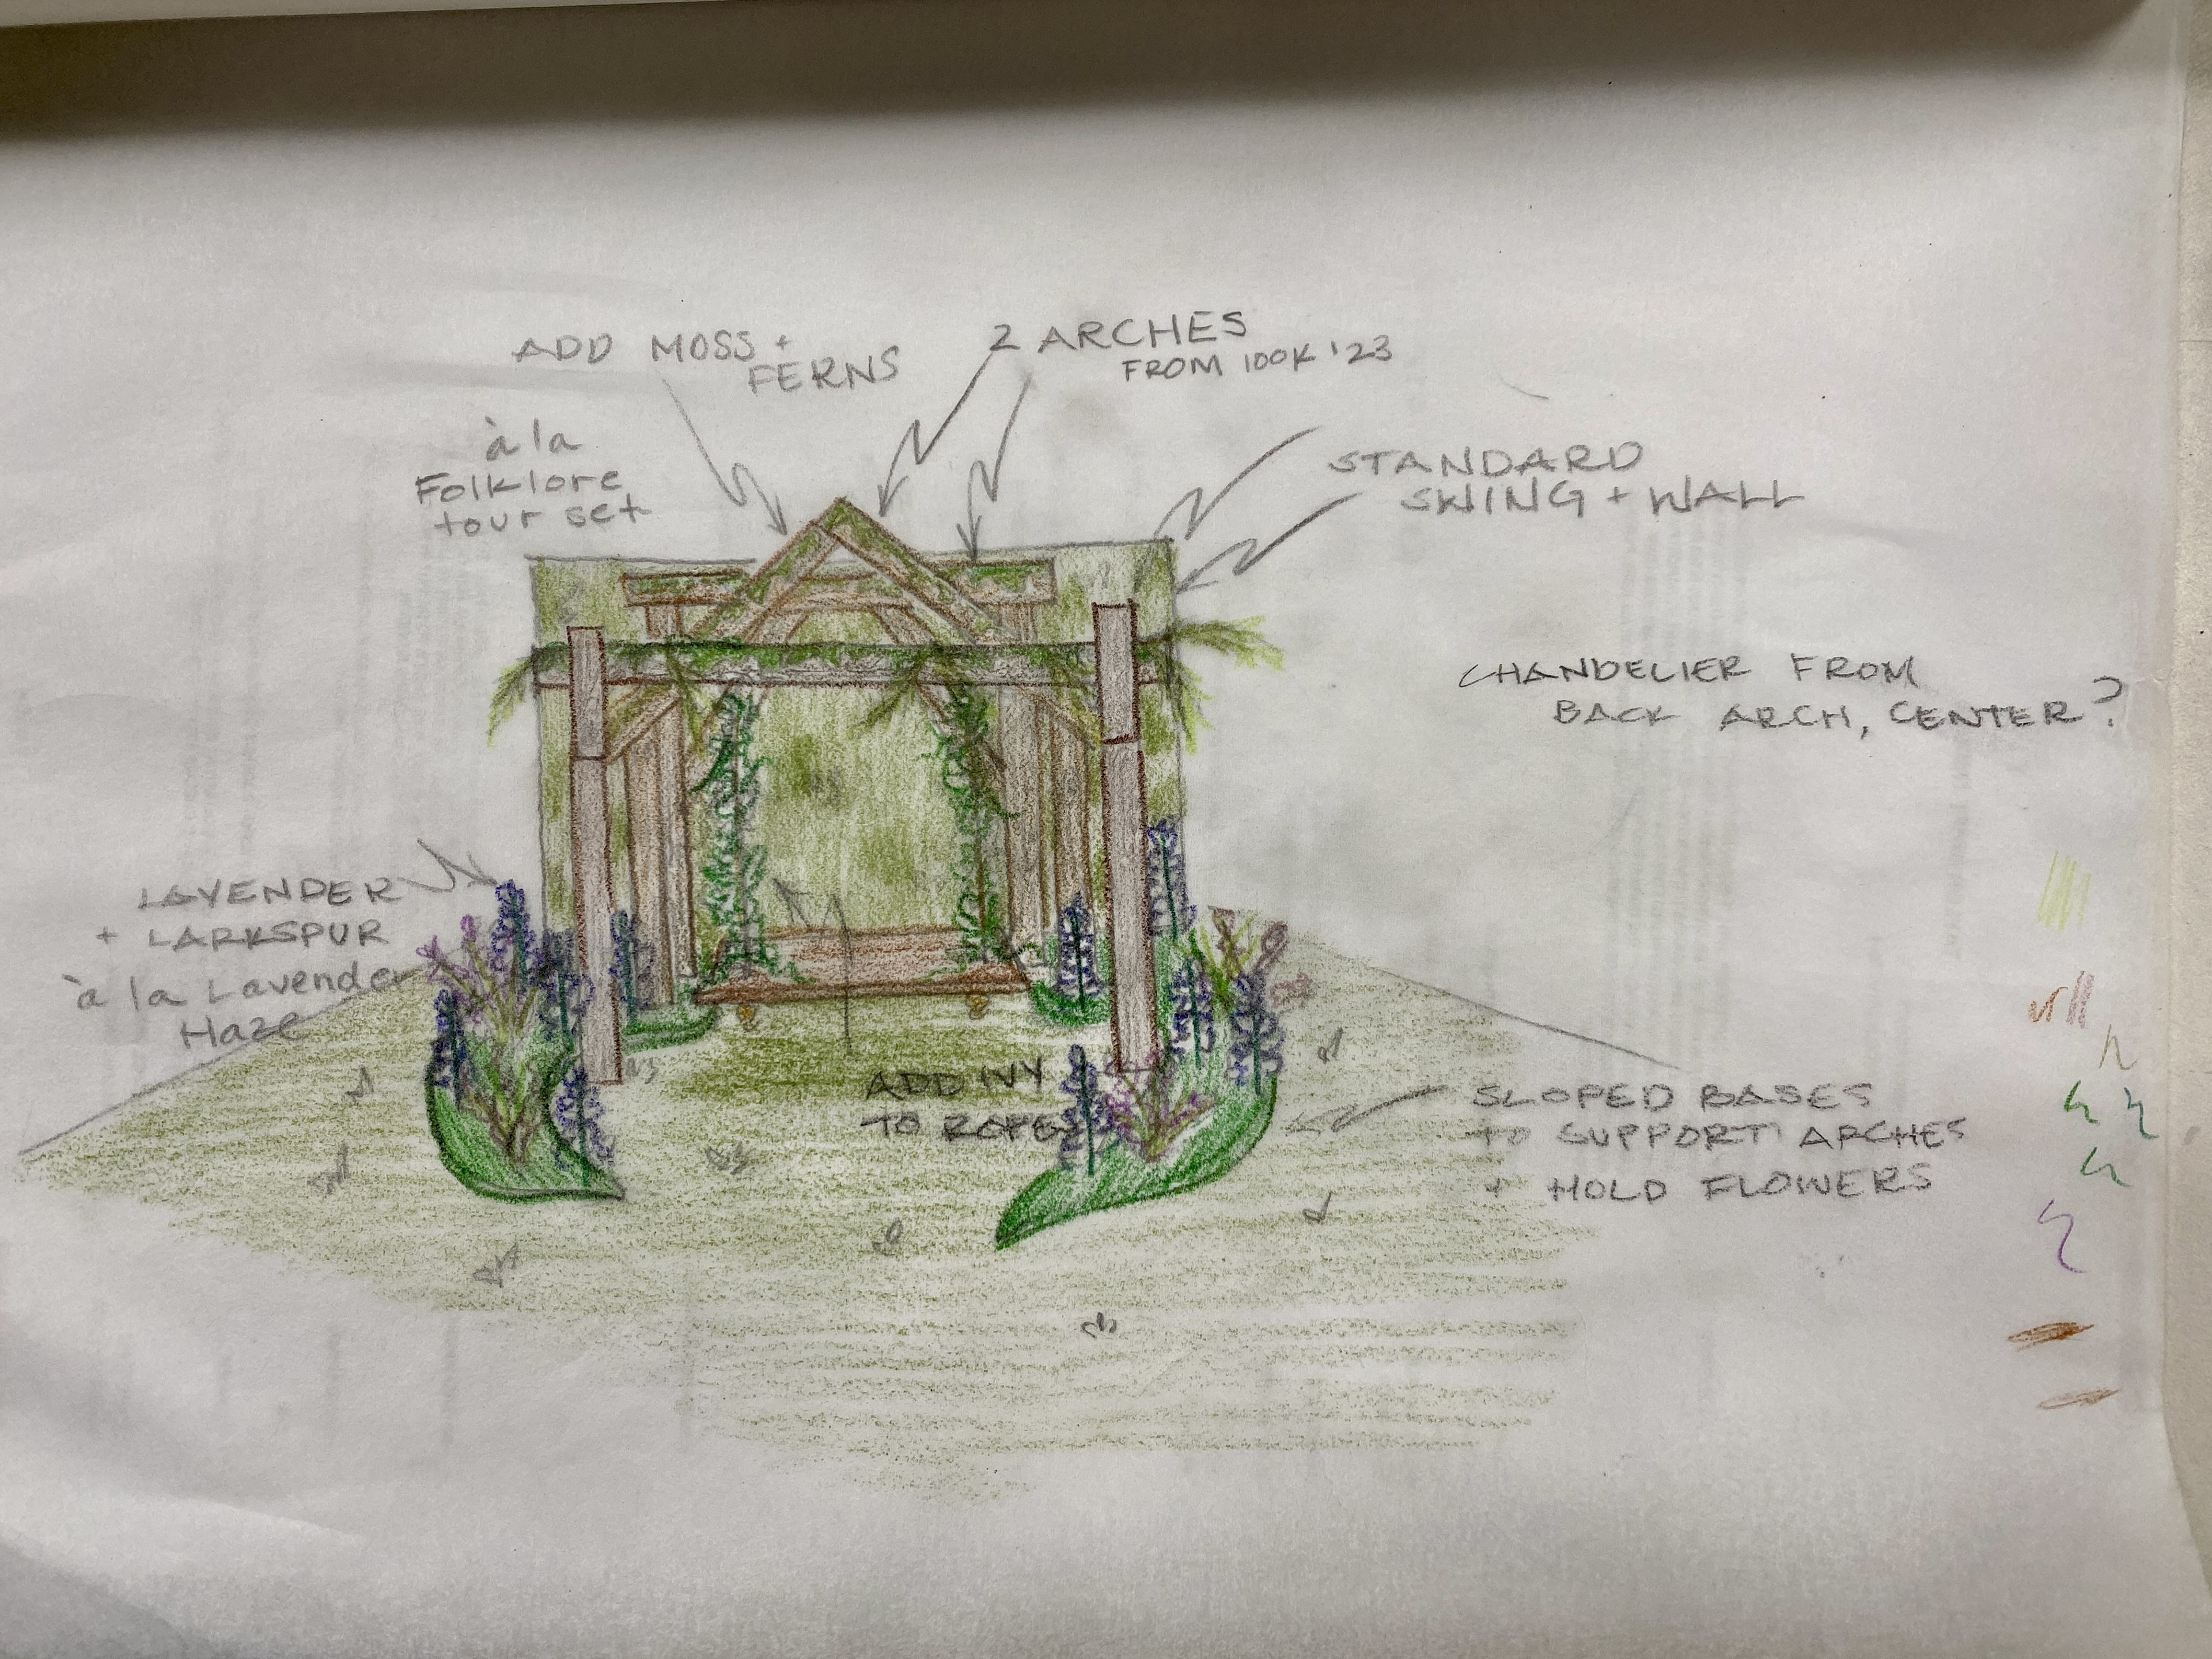 ADD MOSS +
FERNS
à la
Folklore
tour set
2 ARCHES
FROM 100K '23
STANDARD
SWING + WALL
CHANDELIER FROM
BACK ARCH, CENTER?
LAVENDER
+ LARKSPUR
à la Lavender
Haze
ADD IVY
TO ROPES
SLOPED BASES
TO SUPPORT ARCHES
+ HOLD FLOWERS